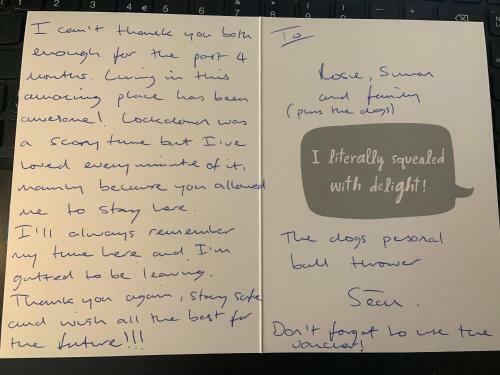 I can't thank you both
enough for the past 4
months. Living in this
amazing place has been
awesome! Lockdown was
a scary time but I've
loved every minute of it,
mainly because you allowed
me to stay here.
I'll always remember
my time here and I'm
gutted to be leaving.
Thank you again, stay safe
and wish all the best for
the future!!!
To
Rosie, Simon
and family
(plus the dogs)
I literally squealed
with delight!
The dogs pesonal
ball thrower
Séan.
Don't forget to use the
voucher!